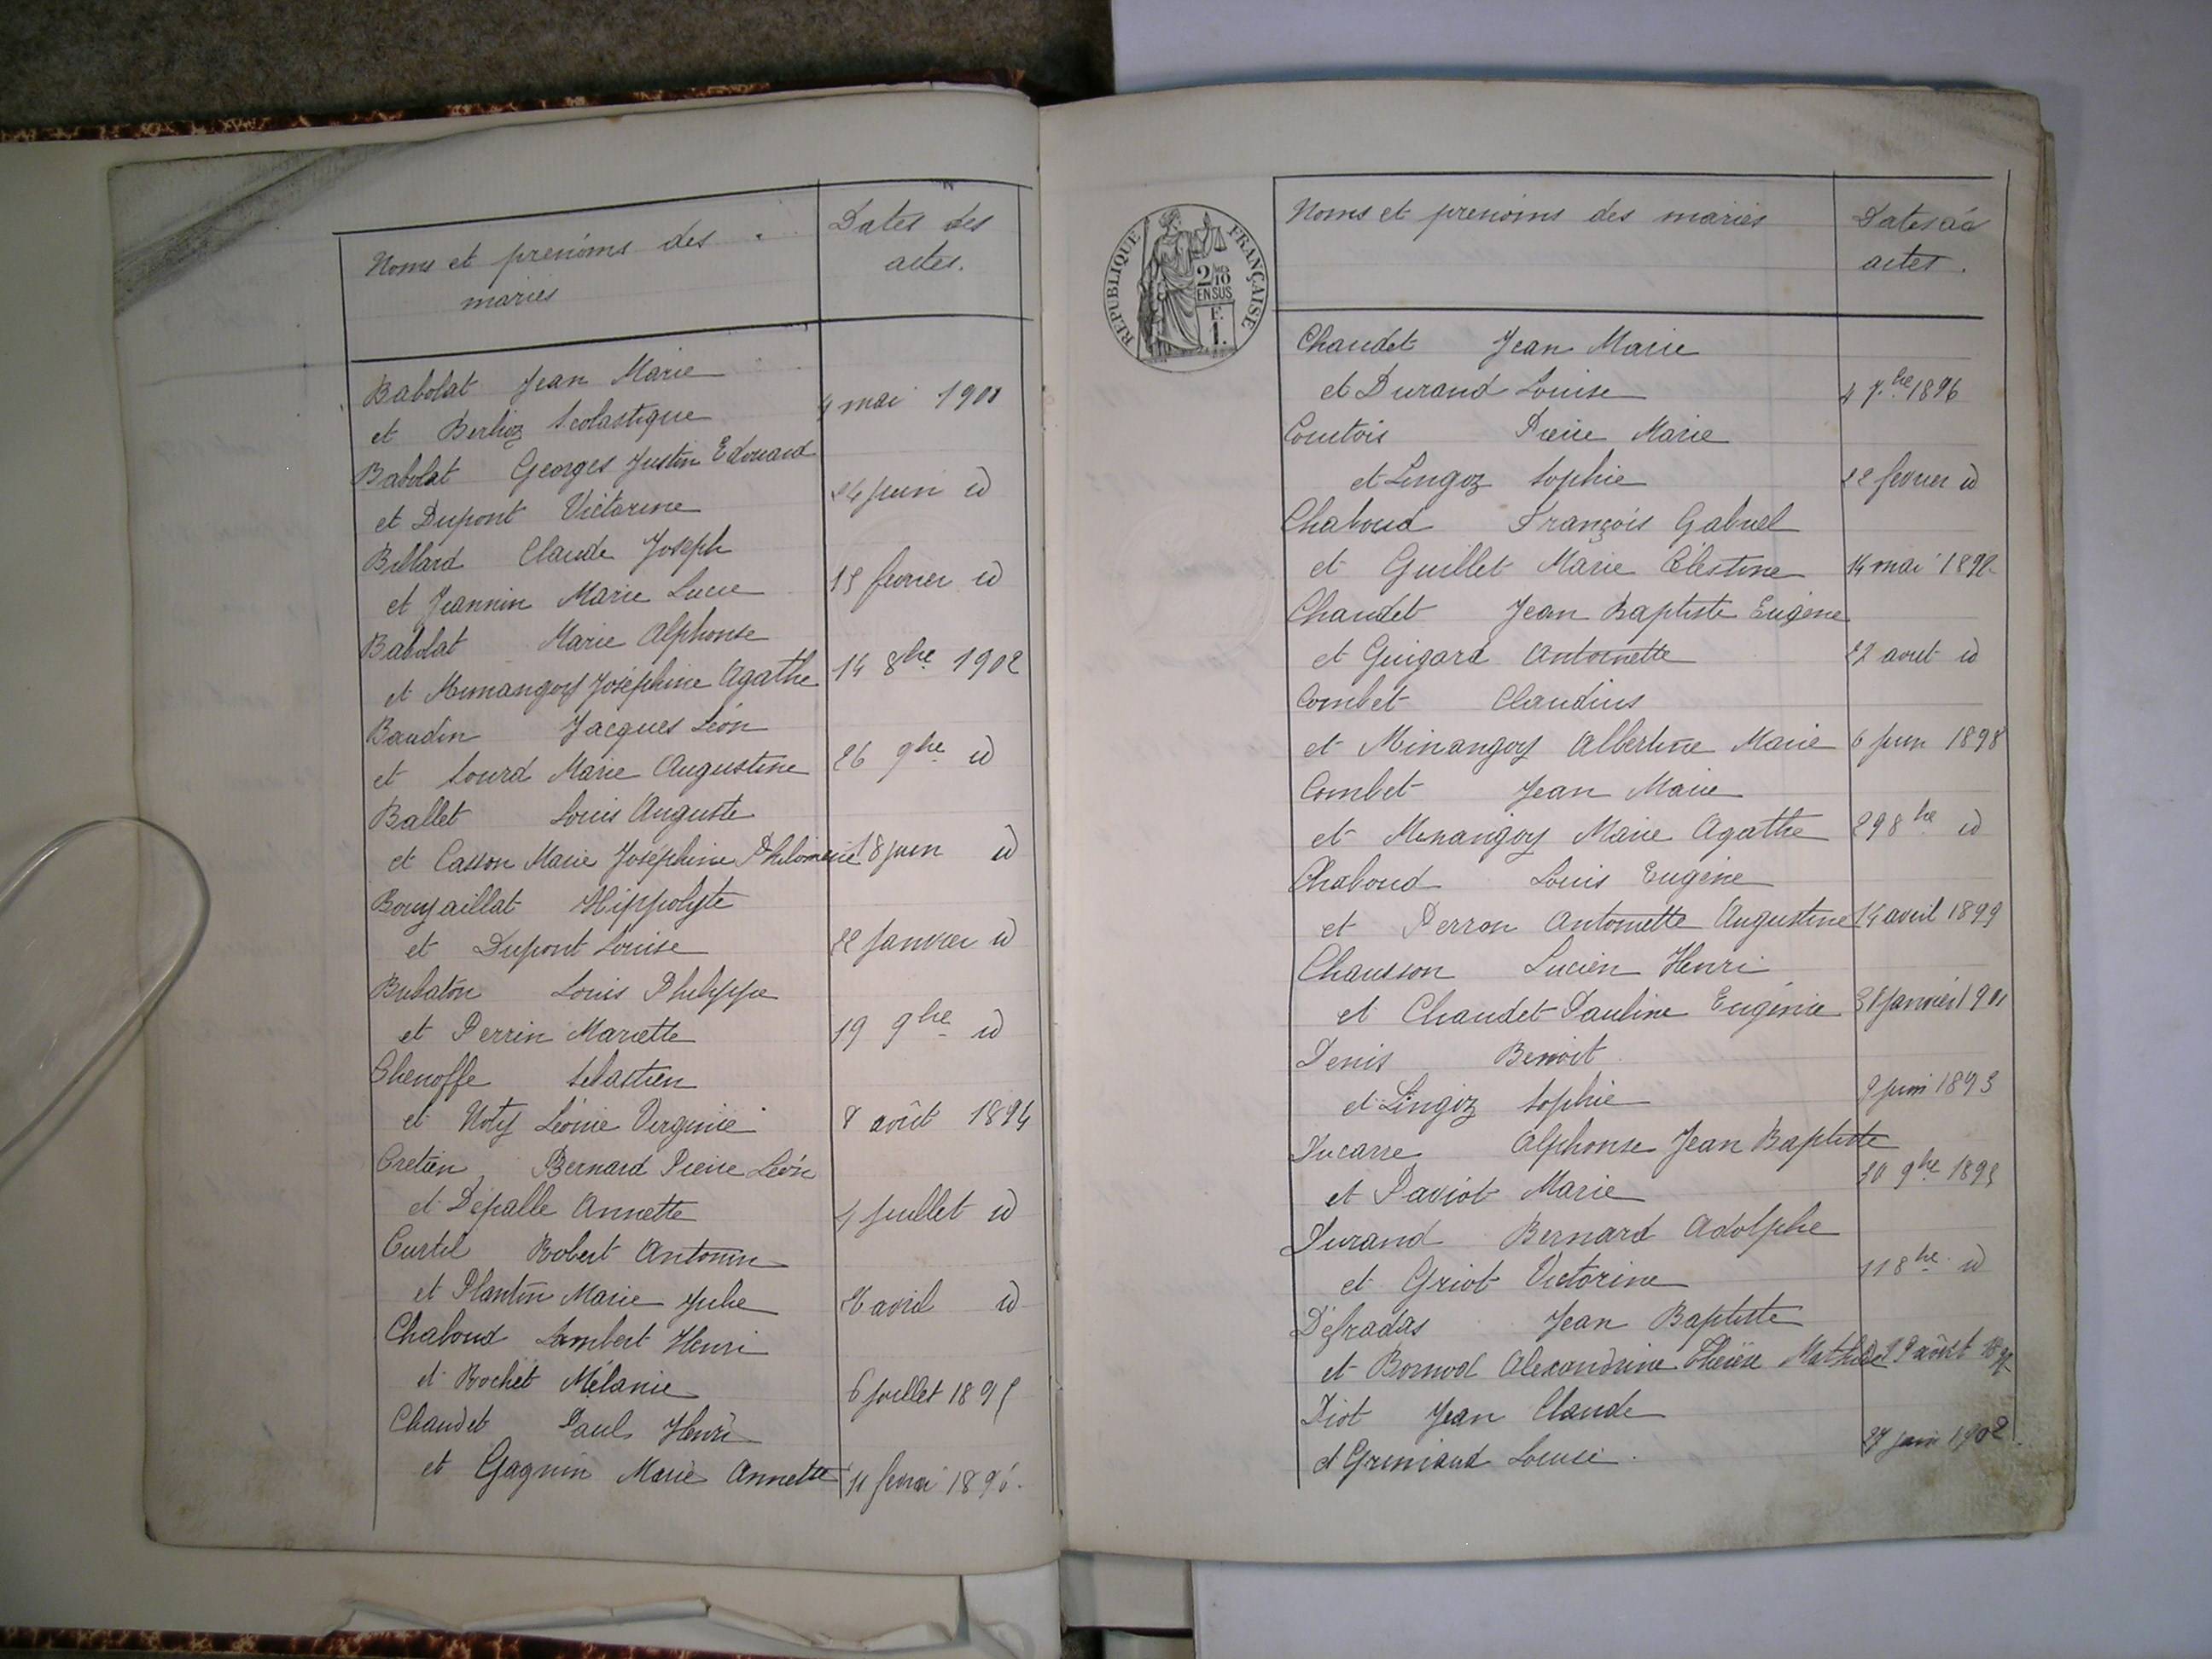 Noms et prénoms des
mariés
Dates des
actes.
Babolat Jean Marie
et Berlioz Scolastique 4 mai 1901
Babolat Georges Justin Edouard
et Dupont Victorine 24 juin id
Billard Claude Joseph
et Jeannin Marie Lucie 15 fevrier id
Babolat Marie Alphonse
et Memangoy Joséphine Agathe 14 8bre 1902
Baudin Jacques Léon
et Sourd Marie Augustine 26 9bre id
Ballet Louis Auguste
et Casson Marie Joséphine Philomene 18 juin id
Bouvaillat Hippolyte
et Dupont Louise 22 janvier id
Louis Philippe
et Perrin Mariette 19 9bre id
Chenoffe Sebastien
et Noty Léonie Virginie 8 août 1894
Cretien Bernard Pierre Léon
et Depalle Annette 4 juillet id
Curtil Robert Antonin
et Plantin Marie Julie avril id
Chaboud Lambert Henri
et Rochet Mélanie 6 juillet 1895
Chaudet Paul Henri
et Gagnin Marie Annette 11 fevrier 1896
RÉPUBLIQUE FRANÇAISE
2/10
EN SUS
F.
1.
Noms et prenoms des mariés
Dates des
actes.
Chaudet Jean Marie
et Durand Louise 4 7bre 1896
Courtois Pierre Marie
et Lingoz Sophie 22 fevrier id
Chaboud François Gabriel
et Guillet Marie Célestine 14 mai
Chaudet Jean Baptiste Eugène
et Guigard Antoinette aout id
Combet Claudius
et Minangoy Albertine Marie 6 juin 1898
Combet Jean Marie
et Menangoy Marie Agathe 29 8bre id
Chaboud Louis Eugène
et Perron Antoinette Augustine 14 avril 1899
Chausson Lucien Henri
et Chaudet Pauline Eugénie janvier 1901
Denis Benoit
et Lingoz Sophie 9 juin 1893
Ducarre Alphonse Jean Baptiste
et Paviot Marie 9bre
Durand Bernard Adolphe
et Griot Victorine 11 8bre id
Défradas Jean Baptiste
et Bornod Alexandrine Thérèse Mathilde août
Diot Jean Claude
et Louise 27 juin 1902